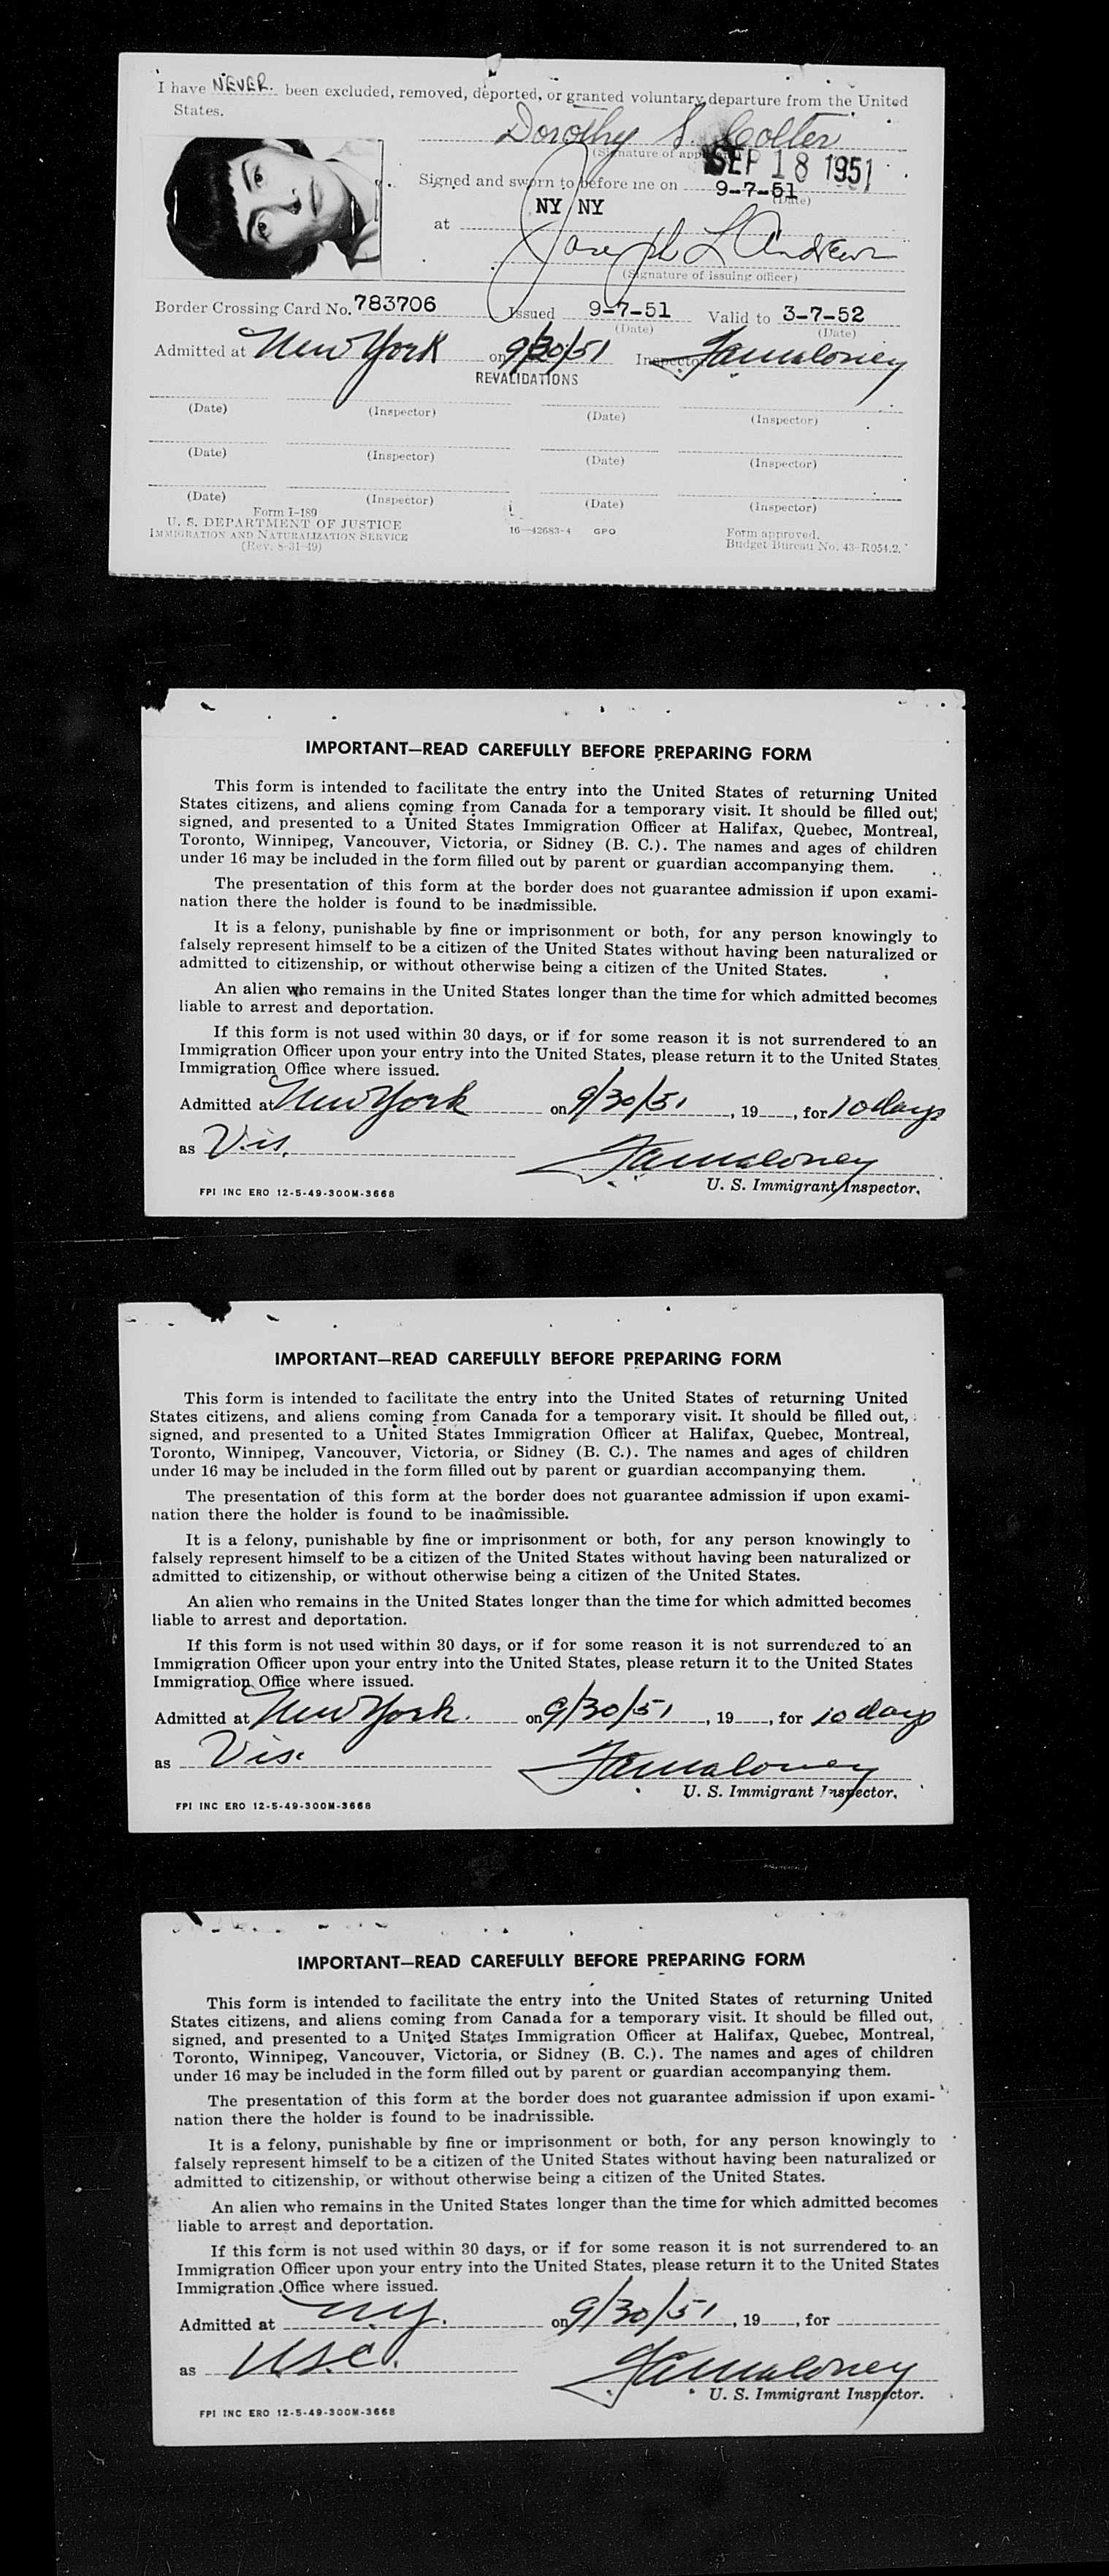 I have NEVER. been excluded, removed, deported, or granted voluntary departure from the United
States.
Dorothy S. Colter
(Signature of applicant)
SEP 18 1951
Signed and sworn to before me on 9-7-51
(Date)
at NY NY
Joseph L Andrews
(Signature of issuing officer)
Border Crossing Card No. 783706 Issued 9-7-51 Valid to 3-7-52
(Date) (Date)
Admitted at New York on 9/30/51 Inspector Jamaloney
REVALIDATIONS
(Date) (Inspector) (Date) (Inspector)
(Date) (Inspector) (Date) (Inspector)
(Date) (Inspector) (Date) (Inspector)
Form I-189
U. S. DEPARTMENT OF JUSTICE
IMMIGRATION AND NATURALIZATION SERVICE
(Rev. 8-31-49)
16—42683-4 GPO
Form approved.
Budget Bureau No. 43-R054.2.
IMPORTANT—READ CAREFULLY BEFORE PREPARING FORM
This form is intended to facilitate the entry into the United States of returning United
States citizens, and aliens coming from Canada for a temporary visit. It should be filled out,
signed, and presented to a United States Immigration Officer at Halifax, Quebec, Montreal,
Toronto, Winnipeg, Vancouver, Victoria, or Sidney (B. C.). The names and ages of children
under 16 may be included in the form filled out by parent or guardian accompanying them.
The presentation of this form at the border does not guarantee admission if upon exami-
nation there the holder is found to be inadmissible.
It is a felony, punishable by fine or imprisonment or both, for any person knowingly to
falsely represent himself to be a citizen of the United States without having been naturalized or
admitted to citizenship, or without otherwise being a citizen of the United States.
An alien who remains in the United States longer than the time for which admitted becomes
liable to arrest and deportation.
If this form is not used within 30 days, or if for some reason it is not surrendered to an
Immigration Officer upon your entry into the United States, please return it to the United States
Immigration Office where issued.
Admitted at New York on 9/30/51, 19, for 10 days
as Vis. Jamaloney
U. S. Immigrant Inspector.
FPI INC ERO 12-5-49-300M-3668
IMPORTANT—READ CAREFULLY BEFORE PREPARING FORM
This form is intended to facilitate the entry into the United States of returning United
States citizens, and aliens coming from Canada for a temporary visit. It should be filled out,
signed, and presented to a United States Immigration Officer at Halifax, Quebec, Montreal,
Toronto, Winnipeg, Vancouver, Victoria, or Sidney (B. C.). The names and ages of children
under 16 may be included in the form filled out by parent or guardian accompanying them.
The presentation of this form at the border does not guarantee admission if upon exami-
nation there the holder is found to be inadmissible.
It is a felony, punishable by fine or imprisonment or both, for any person knowingly to
falsely represent himself to be a citizen of the United States without having been naturalized or
admitted to citizenship, or without otherwise being a citizen of the United States.
An alien who remains in the United States longer than the time for which admitted becomes
liable to arrest and deportation.
If this form is not used within 30 days, or if for some reason it is not surrendered to an
Immigration Officer upon your entry into the United States, please return it to the United States
Immigration Office where issued.
Admitted at New York. on 9/30/51, 19, for 10 days
as Vis. Jamaloney
U. S. Immigrant Inspector.
FPI INC ERO 12-5-49-300M-3668
IMPORTANT—READ CAREFULLY BEFORE PREPARING FORM
This form is intended to facilitate the entry into the United States of returning United
States citizens, and aliens coming from Canada for a temporary visit. It should be filled out,
signed, and presented to a United States Immigration Officer at Halifax, Quebec, Montreal,
Toronto, Winnipeg, Vancouver, Victoria, or Sidney (B. C.). The names and ages of children
under 16 may be included in the form filled out by parent or guardian accompanying them.
The presentation of this form at the border does not guarantee admission if upon exami-
nation there the holder is found to be inadmissible.
It is a felony, punishable by fine or imprisonment or both, for any person knowingly to
falsely represent himself to be a citizen of the United States without having been naturalized or
admitted to citizenship, or without otherwise being a citizen of the United States.
An alien who remains in the United States longer than the time for which admitted becomes
liable to arrest and deportation.
If this form is not used within 30 days, or if for some reason it is not surrendered to an
Immigration Officer upon your entry into the United States, please return it to the United States
Immigration Office where issued.
Admitted at NY. on 9/30/51, 19, for
as U.S.C. Jamaloney
U. S. Immigrant Inspector.
FPI INC ERO 12-5-49-300M-3668